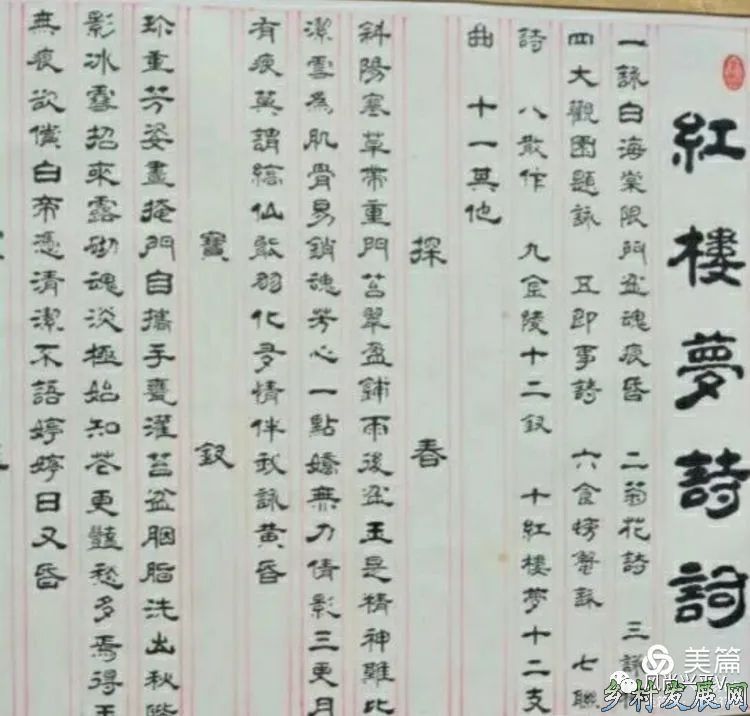 紅樓夢詩詞
一詠白海棠限門盆魂痕昏 二菊花詩 三
四大觀園題詠 五即事詩 六食螃蟹詠 七聯
詩 八散作 九金陵十二釵 十紅樓夢十二支
曲 十一其他
探春
斜陽寒草帶重門苔翠盈鋪雨後盆玉是精神難比
潔雪為肌骨易銷魂芳心一點嬌無力倩影三更月
有痕莫謂縞仙能羽化多情伴我詠黃昏
寶釵
珍重芳姿晝掩門自攜手甕灌苔盆胭脂洗出秋階
影冰雪招來露砌魂淡極始知花更豔愁多焉得玉
無痕欲償白帝憑清潔不語婷婷日又昏
美篇
乡村发展网